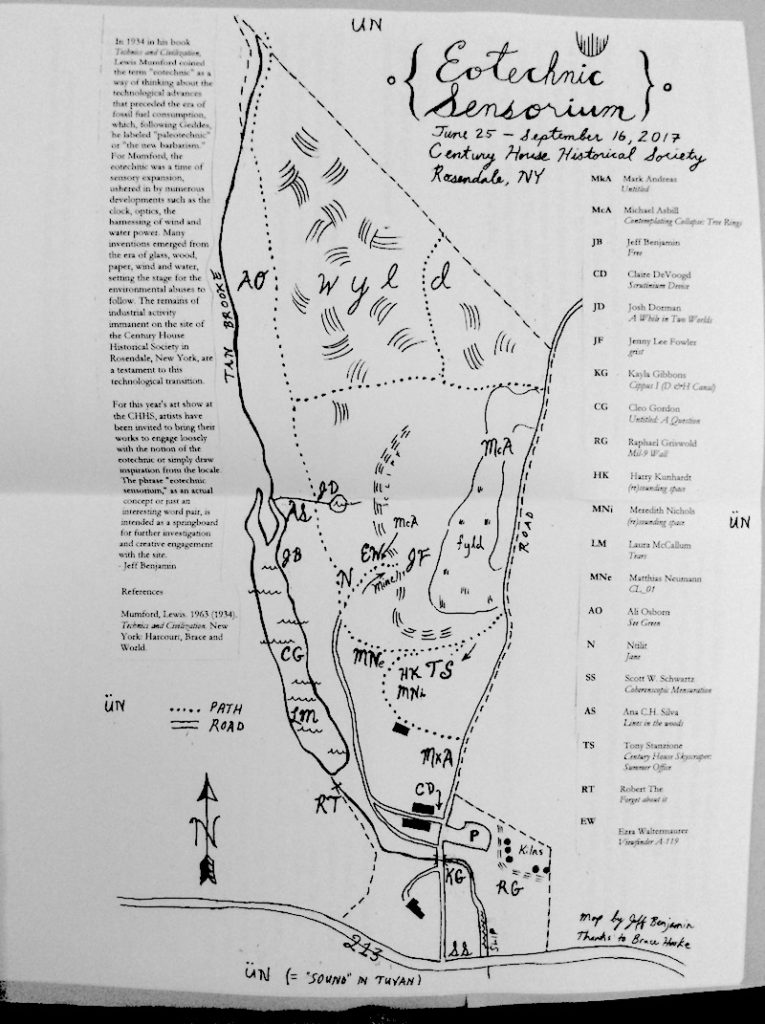 ÜN
{Eotechnic
Sensorium}
June 25 – September 16, 2017
Century House Historical Society
Rosendale, NY
In 1934 in his book
Technics and Civilization,
Lewis Mumford coined
the term "eotechnic" as a
way of thinking about the
technological advances
that preceded the era of
fossil fuel consumption,
which, following Geddes,
he labeled "paleotechnic"
or "the new barbarism."
For Mumford, the
eotechnic was a time of
sensory expansion,
ushered in by numerous
developments such as the
clock, optics, the
harnessing of wind and
water power. Many
inventions emerged from
the era of glass, wood,
paper, wind and water,
setting the stage for the
environmental abuses to
follow. The remains of
industrial activity
immanent on the site of
the Century House
Historical Society in
Rosendale, New York, are
a testament to this
technological transition.
For this year's art show at
the CHHS, artists have
been invited to bring their
works to engage loosely
with the notion of the
eotechnic or simply draw
inspiration from the locale.
The phrase "eotechnic
sensorium," as an actual
concept or just an
interesting word pair, is
intended as a springboard
for further investigation
and creative engagement
with the site.
- Jeff Benjamin
References
Mumford, Lewis. 1963 (1934).
Technics and Civilization. New
York: Harcourt, Brace and
World.
MkA Mark Andreas
Untitled
McA Michael Asbill
Contemplating Collapse: Tree Rings
JB Jeff Benjamin
Free
CD Claire DeVoogd
Scrutinium Device
JD Josh Dorman
A While in Two Worlds
JF Jenny Lee Fowler
grist
KG Kayla Gibbons
Cippus I (D & H Canal)
CG Cleo Gordon
Untitled: A Question
RG Raphael Griswold
Mil-9 Wall
HK Harry Kunhardt
(re)sounding space
MNi Meredith Nichols
(re)sounding space
LM Laura McCallum
Tears
MNe Matthias Neumann
CL_01
AO Ali Osborn
See Green
N Ntilit
Jane
SS Scott W. Schwartz
Coherenscopic Mensuration
AS Ana C.H. Silva
Lines in the woods
TS Tony Stanzione
Century House Skyscraper:
Summer Office
RT Robert The
Forget about it
EW
Ezra Waltermaurer
Viewfinder A-119
AO
wyld
TAN BROOKE
McA
JD
AS
CLIFF
McA
fyld
ROAD
ÜN
JB
EW
JF
N
mine
CG
MNe
HK TS
MNi
LM
ÜN
PATH
ROAD
MkA
RT
CD
N
P
Kilns
KG
RG
213
SS
SLIP
Map by Jeff Benjamin
Thanks to Bruce Hooke
ÜN (= "SOUND" IN TUVAN)